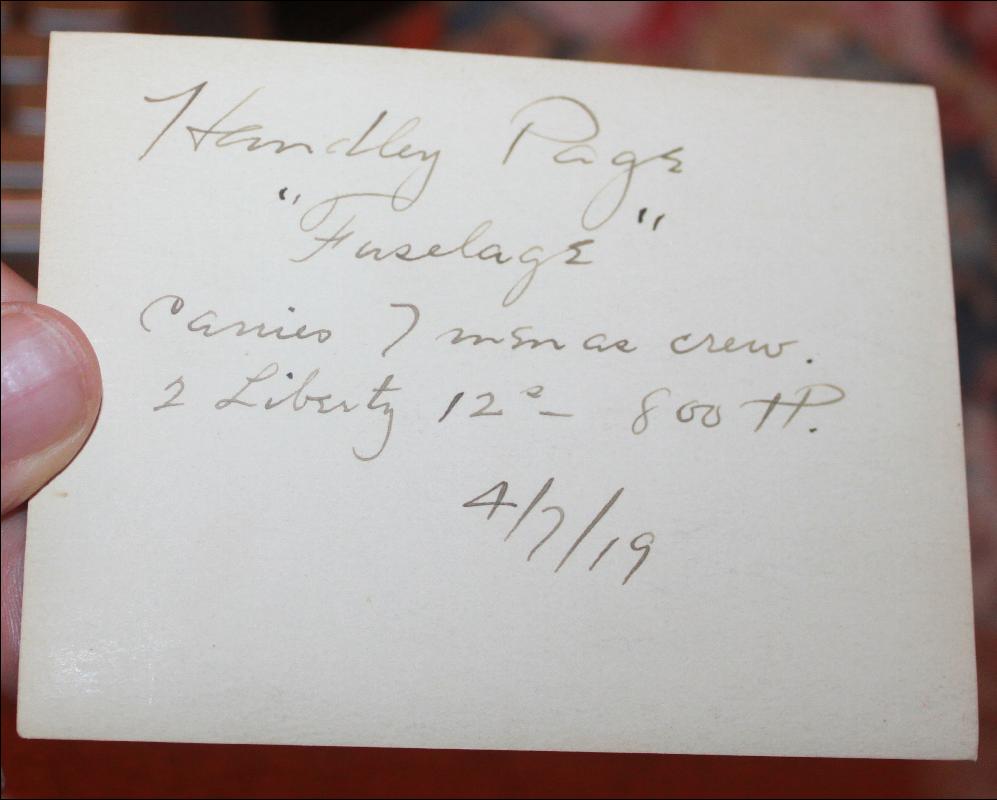 Handley Page
"Fuselage"
Carries 7 men as crew.
2 Liberty 12s - 800 HP.
4/7/19